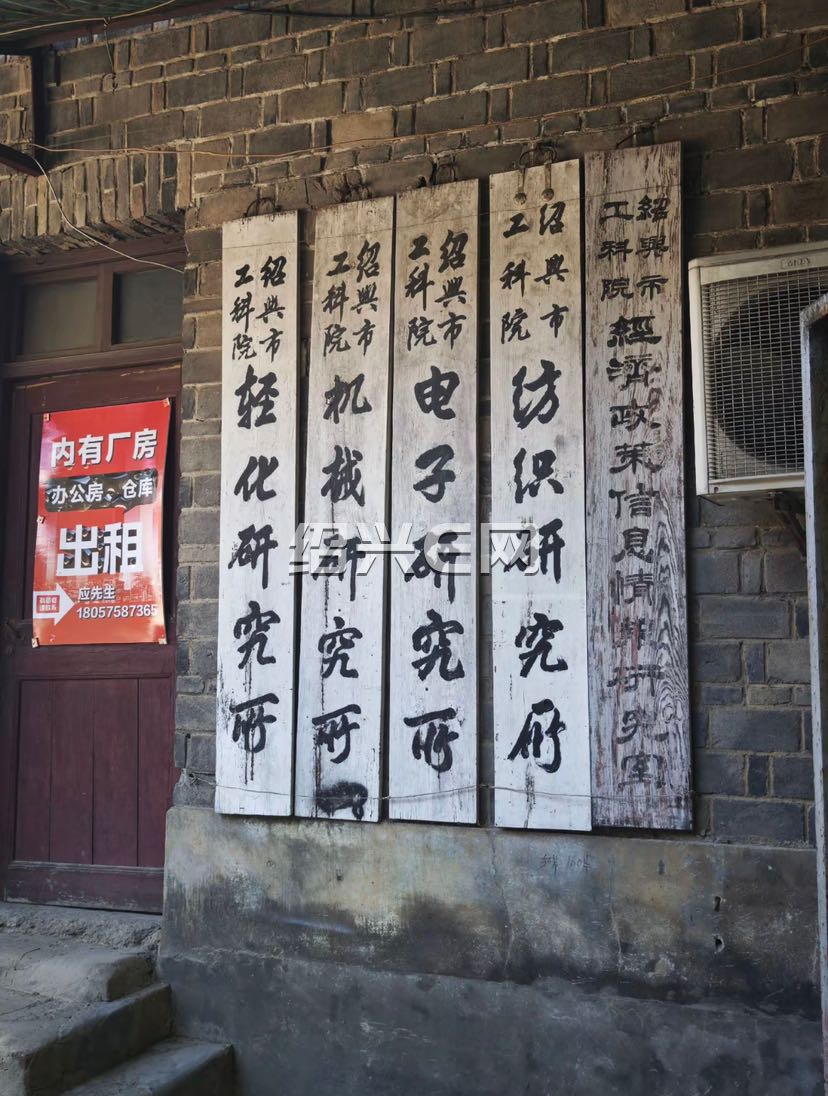 内有厂房
办公房、仓库
出租
应先生
18057587365
绍興市
工科院
轻化研究所
绍興市
工科院
机械研究所
绍興市
工科院
电子研究所
绍興市
工科院
纺织研究所
紹興市
工科院
經濟政策信息情报研究室
绍兴E网